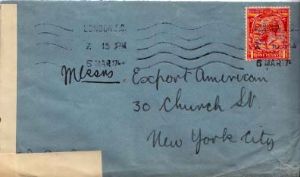 LONDON, E.C.
2 15 PM
6 MAR 17
Messrs Export American
30 Church St.
New York City